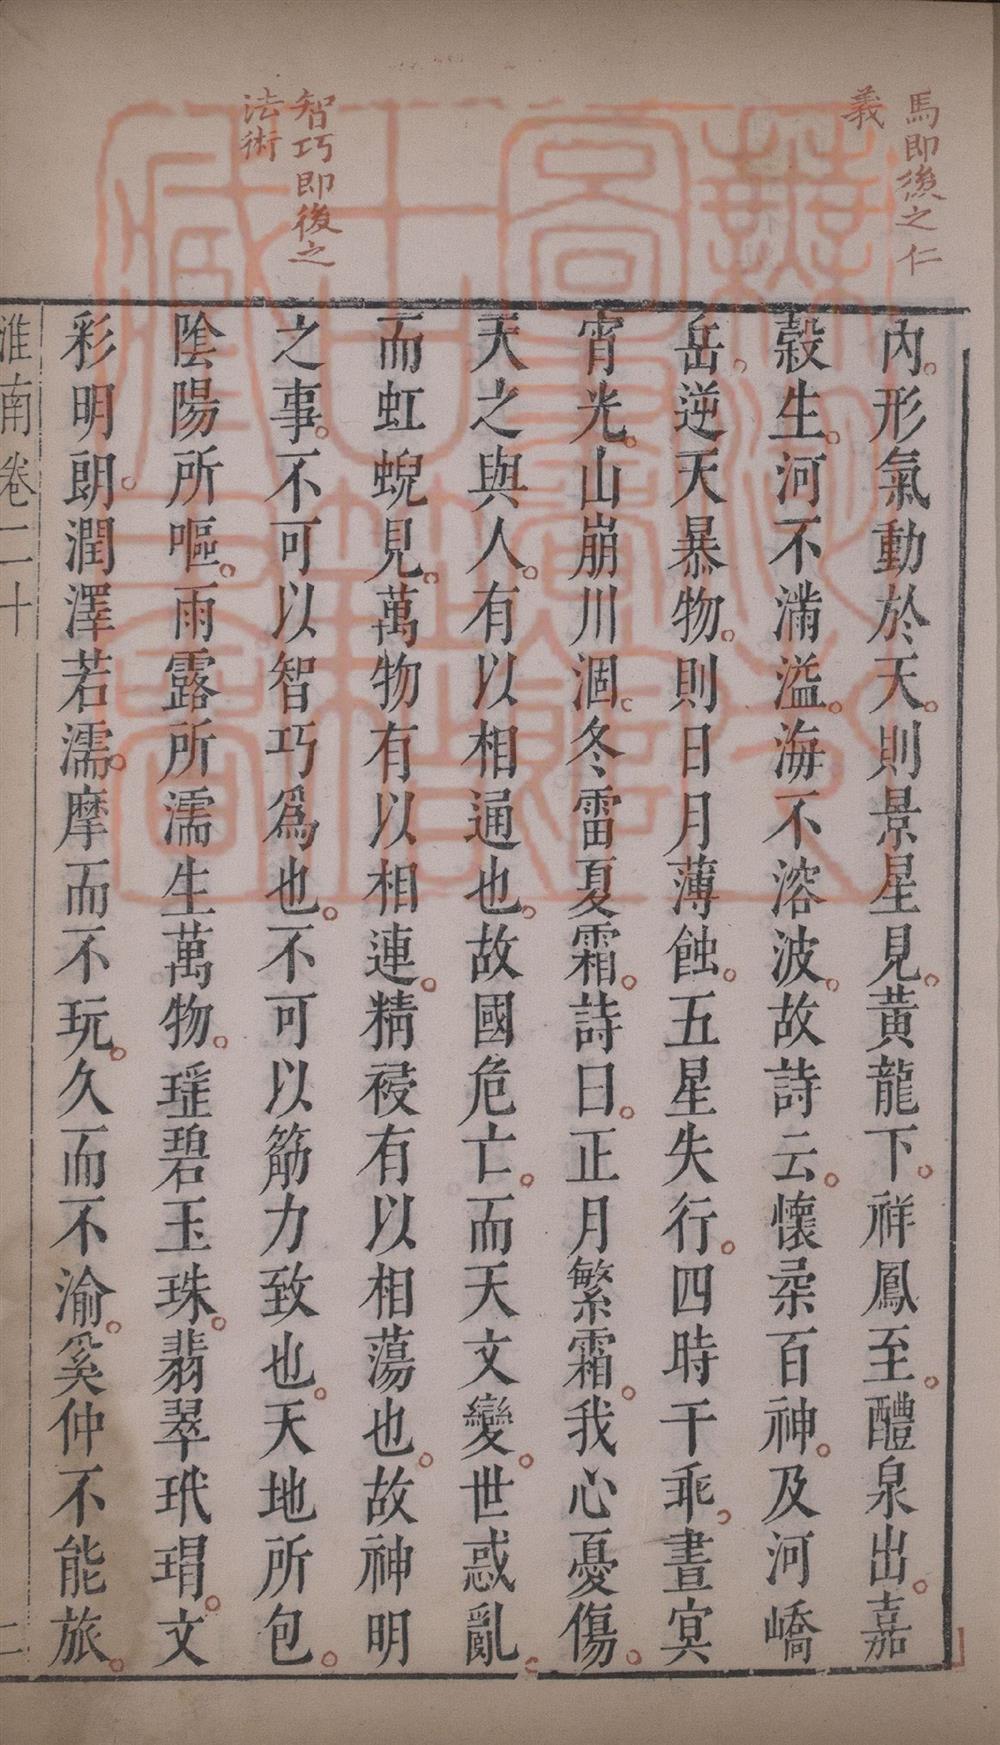 馬即後之仁
義
智巧即後之
法術
內形氣動於天則景星見黃龍下祥鳳至醴泉出嘉
穀生河不滿溢海不溶波故詩云懷柔百神及河嶠
岳逆天暴物則日月薄蝕五星失行四時干乖晝冥
宵光山崩川涸冬雷夏霜詩曰正月繁霜我心憂傷
天之與人有以相通也故國危亡而天文變世惑亂
而虹蜺見萬物有以相連精祲有以相蕩也故神明
之事不可以智巧爲也不可以筋力致也天地所包
陰陽所嘔雨露所濡生萬物瑶碧玉珠翡翠玳瑁文
彩明朗潤澤若濡摩而不玩久而不渝奚仲不能旅
淮南卷二十
二